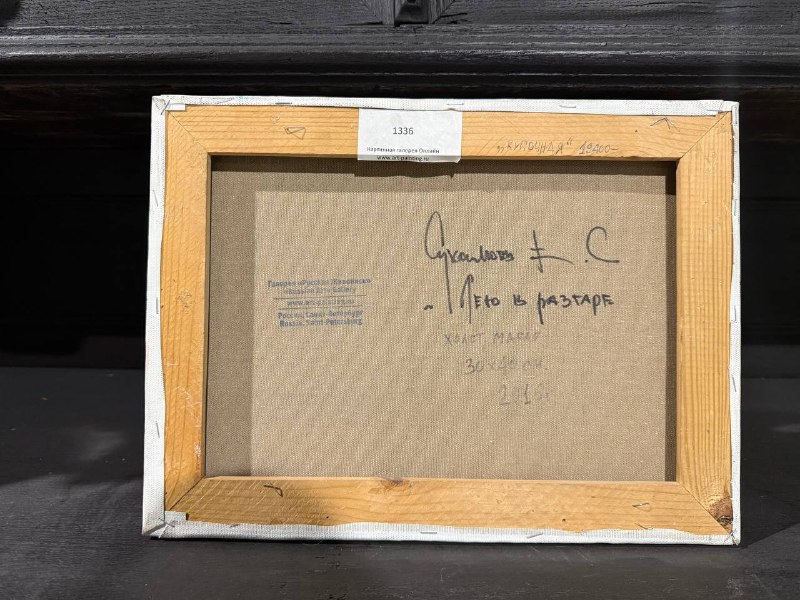 1336
Картинная галерея Онлайн
www.art-painting.ru
18400-
Галерея «Русская Живопись»
Gallery
Россия, Санкт-Петербург
Russia, Saint-Petersburg
Е. С
Лето в разгаре
холст масло
30х40 см.